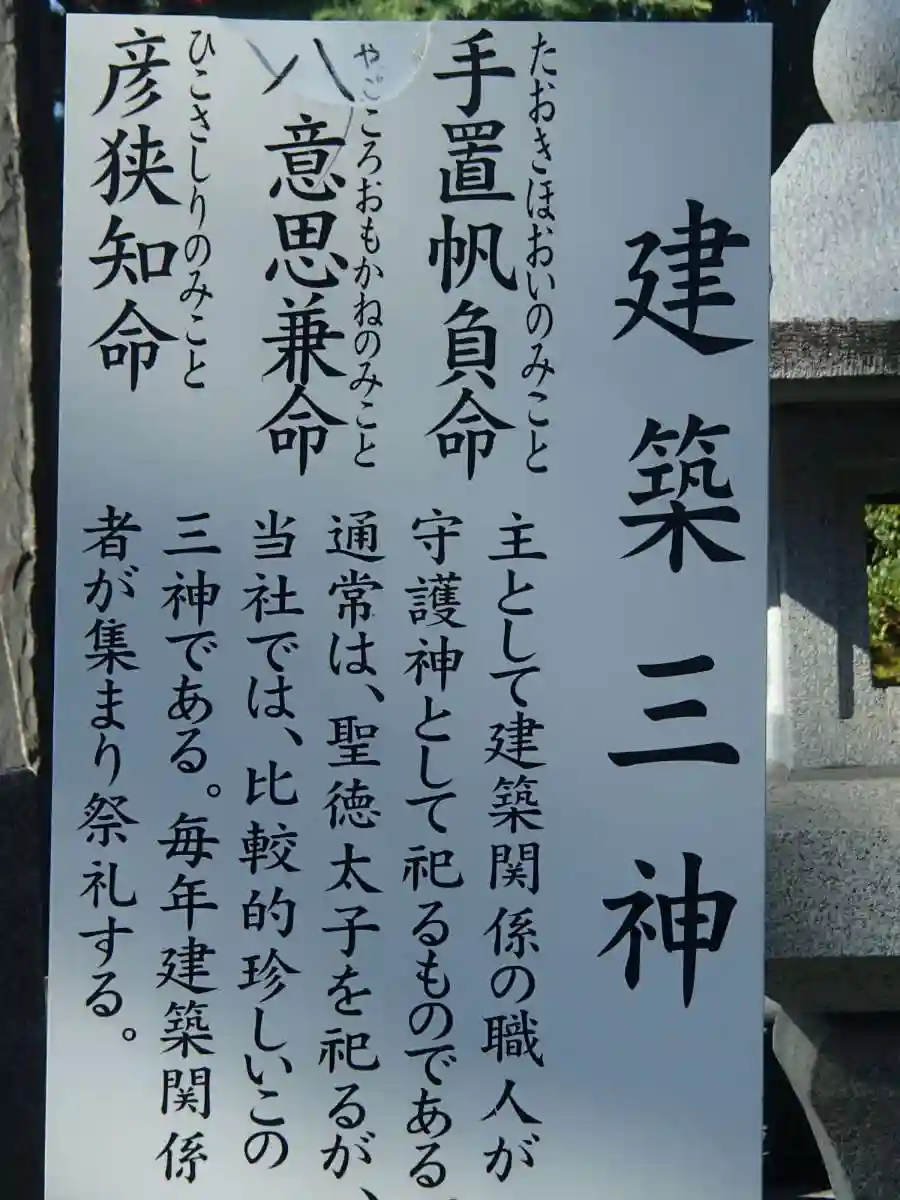 建築三神
たおきほおいのみこと
手置帆負命
やごころおもかねのみこと
八意思兼命
ひこさしりのみこと
彦狭知命
主として建築関係の職人が
守護神として祀るものである。
通常は、聖徳太子を祀るが、
当社では、比較的珍しいこの
三神である。毎年建築関係
者が集まり祭礼する。